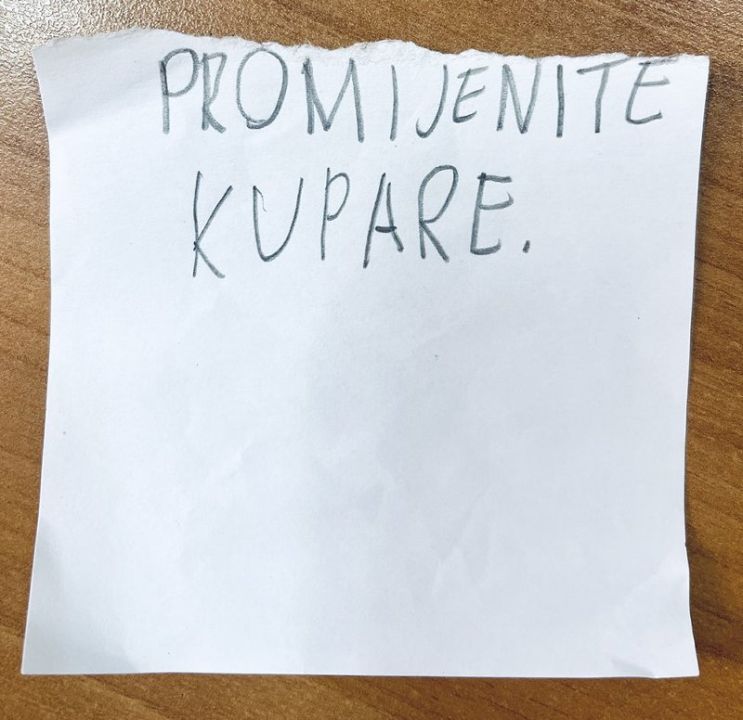 PROMIJENITE
KUPARE.